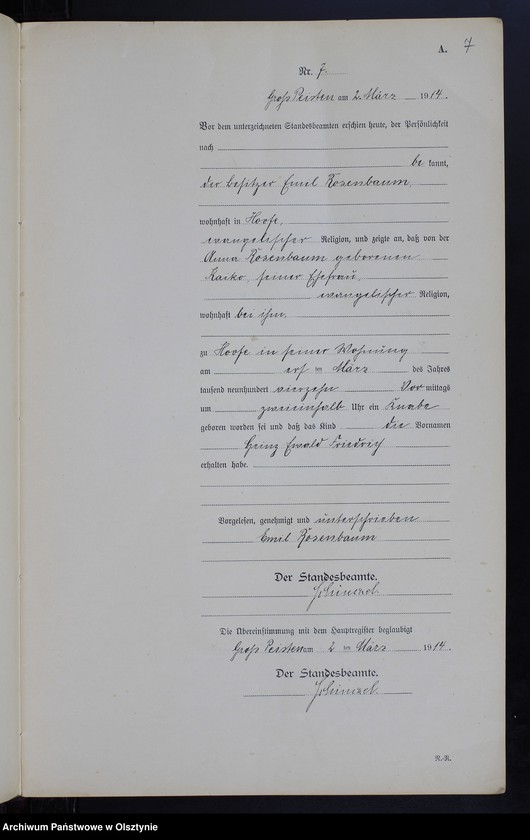 A. 7
Nr. 7.
Groß Peisten am 2. März 1914.
Vor dem unterzeichneten Standesbeamten erschien heute, der Persönlichkeit
nach
be kannt,
der Besitzer Emil Rosenbaum
wohnhaft in Hoofe,
evangelischer Religion, und zeigte an, daß von der
Anna Rosenbaum geborenen
Kaiko, seiner Ehefrau,
evangelischer Religion,
wohnhaft bei ihm
zu Hoofe in seiner Wohnung
am ersten März des Jahres
tausend neunhundert vierzehn Vor mittags
um zweieinhalb Uhr ein Knabe
geboren worden sei und daß das Kind die Vornamen
Heinz Ewald Friedrich
erhalten habe.
Vorgelesen, genehmigt und unterschrieben
Emil Rosenbaum
Der Standesbeamte.
Die Übereinstimmung mit dem Hauptregister beglaubigt
Groß Peisten am 2 ten März 1914.
Der Standesbeamte.
N.-R.
Archiwum Państwowe w Olsztynie